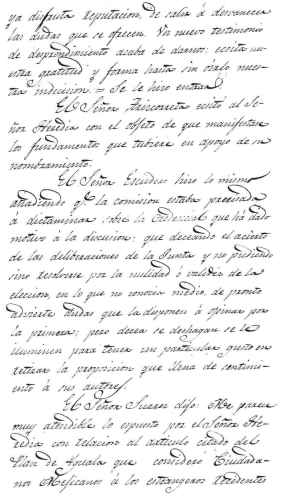 ya disfruta reputacion, de salir á desvanecer
las dudas que se ofrecen. Un nuevo testimonio
de desprendimiento acaba de darnos; ecsita nu-
estra gratitud y forma hasta sin oirlo nues-
tra indecision. = Se le hizo entrar
El Señor Aizcorveta ecsitó al Se-
ñor Heredia con el objeto de que manifestara
los fundamentos que tubiere en apoyo de su
nombramiento.
El Señor Escudero hizo lo mismo
añadiendo qe. la comision estaba precisada
á dictaminar sobre la Credencial que há dado
motivo á la discusion: que deceando el acierto
de las deliberaciones de la Junta y no pudiendo
sino resolverse por la nulidad ó validéz de la
eleccion, en lo que no conocia medio, de pronto
advierte dudas que la disponen á opinar por
la primera; pero decea se deshagan se le
iluminen para tener un particular gusto en
retirar la proposicion que llena de sentimi-
ento á sus autores
El Señor Suarez dijo: Me parece
muy atendible lo espuesto por el Señor He-
redia con relacion al articulo citado del
Plan de Iguala que consideró Ciudada-
nos Mejicanos á los estrangeros recidentes